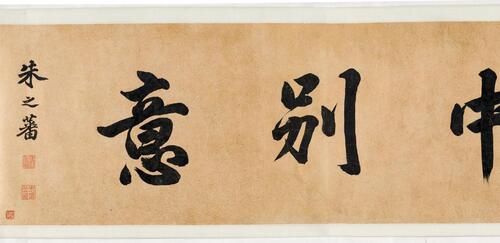 中別意
朱之蕃